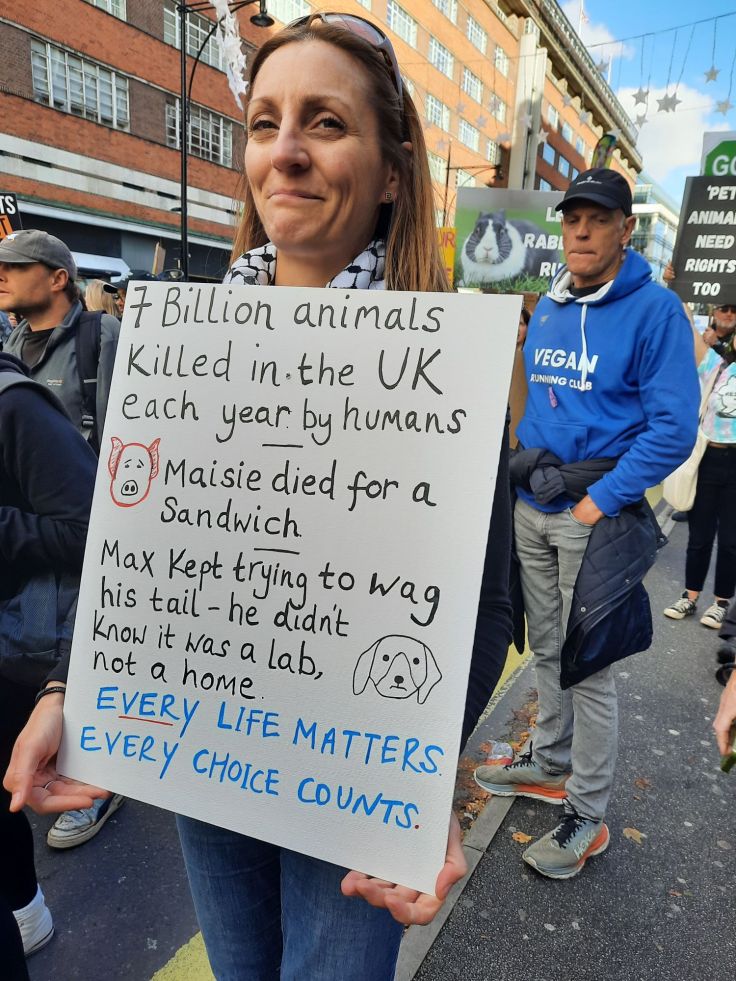 7 Billion animals
Killed in the UK
each year by humans
Maisie died for a
Sandwich
Max Kept trying to wag
his tail - he didn't
Know it was a lab,
not a home.
EVERY LIFE MATTERS.
EVERY CHOICE COUNTS.
VEGAN
RUNNING CLUB
RABB
RU
GO
'PET
ANIMA
NEED
RIGHTS
TOO
TS